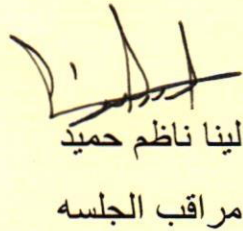 لينا ناظم حميد
مراقب الجلسه